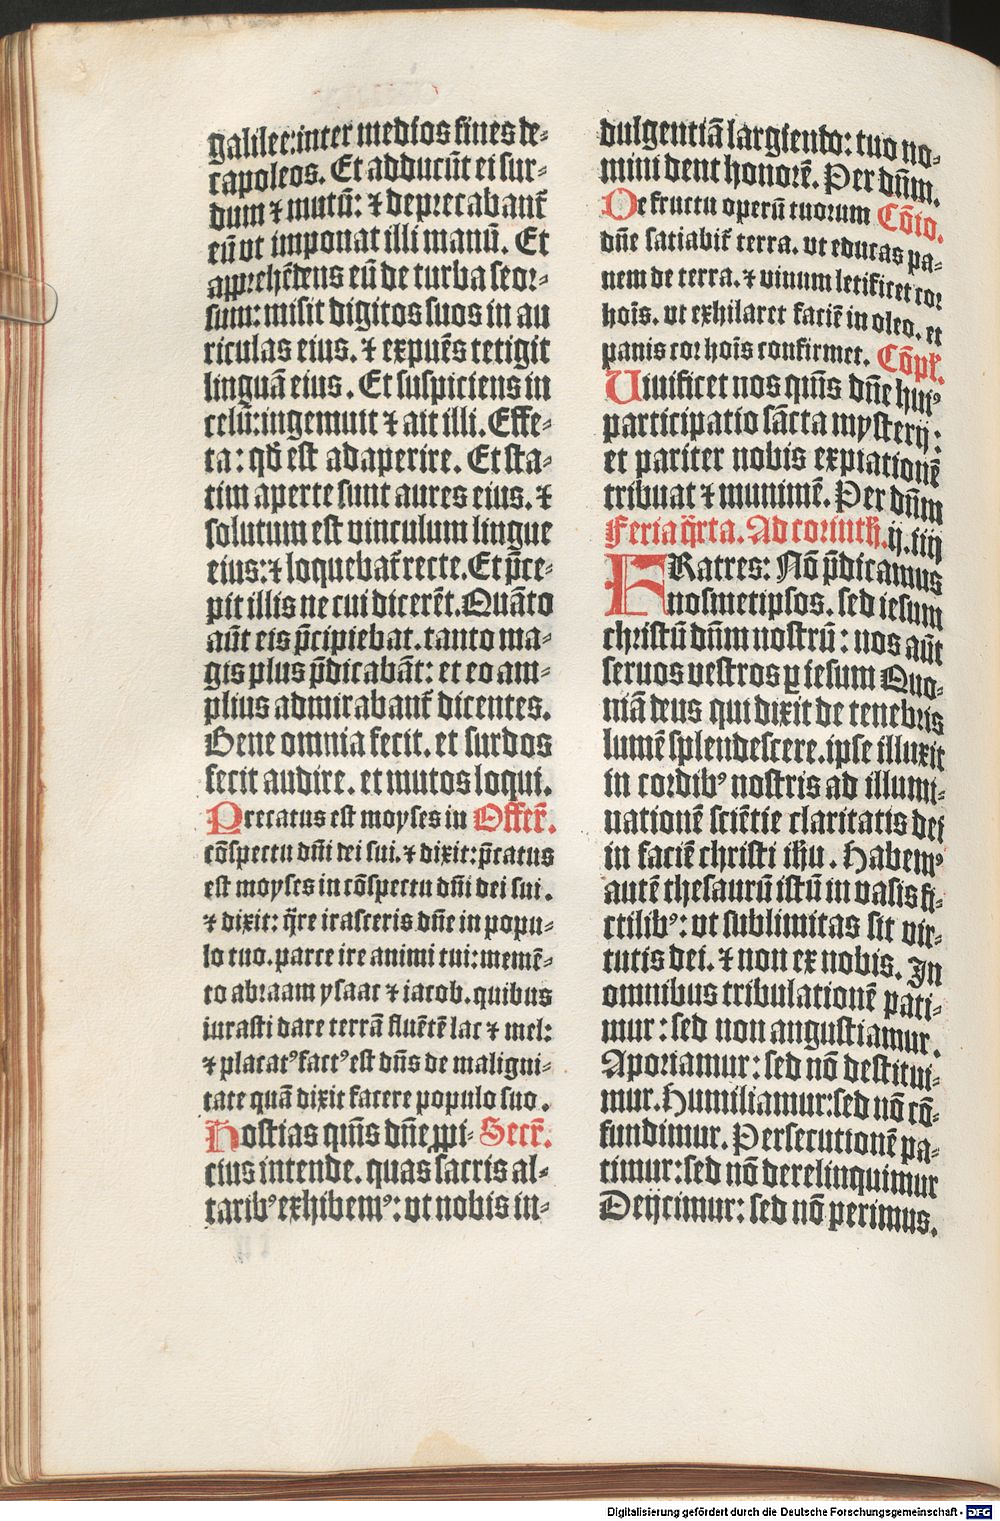 galilee: inter medios fines de-
capoleos. Et adducūt ei sur-
dum ⁊ mutū: ⁊ deprecabant᷑
eū vt imponat illi manū. Et
apprehēdens eū de turba seor-
sum: misit digitos suos in au
riculas eius. ⁊ expuēs tetigit
linguā eius. Et suspiciens in
celū: ingemuit ⁊ ait illi. Effe-
ta: qđ est adaperire. Et sta-
tim aperte sunt aures eius. ⁊
solutum est vinculum lingue
eius: ⁊ loquebat᷑ recte. Et p̄ce-
pit illis ne cui dicerēt. Quāto
aūt eis p̄cipiebat. tanto ma-
gis plus p̄dicabāt: et eo am-
plius admirabant᷑ dicentes.
Bene omnia fecit. et surdos
fecit audire. et mutos loqui.
Precatus est moyses in Offer̄.
cōspectu dn̄i dei sui. ⁊ dixit: p̄catus
est moyses in cōspectu dn̄i dei sui.
⁊ dixit: q̄re irasceris dn̄e in popu-
lo tuo. parce ire animi tui: memē-
to abraam ysaac ⁊ iacob. quibus
iurasti dare terrā fluētē lac ⁊ mel:
⁊ placatꝰ factꝰ est dn̄s de maligni-
tate quā dixit facere populo suo.
Hostias qm̄s dn̄e ꝓpi- Secr̄.
cius intende. quas sacris al-
taribꝰ exhibemꝰ: vt nobis in-
dulgentiā largiendo: tuo no-
mini dent honorē. Per dn̄m.
De fructu operū tuorum Cōio.
dn̄e satiabit᷑ terra. vt educas pa-
nem de terra. ⁊ vinum letificet cor
hoīs. vt exhilaret faciē in oleo. et
panis cor hoīs confirmet. Cōpl̄.
Uiuificet nos qm̄s dn̄e huiꝰ
participatio sācta mysterij:
et pariter nobis expiationē
tribuat ⁊ munimē. Per dn̄m
Feria q̄rta. Ad corinth. ij. iiij
FRatres: Nō p̄dicamus
nosmetipsos. sed iesum
christū dn̄m nostrū: nos aūt
seruos vestros ꝑ iesum Quo-
niā deus qui dixit de tenebris
lumē splendescere. ipse illuxit
in cordibꝰ nostris ad illumi-
nationē sciētie claritatis dei
in faciē christi ih̄u. Habemꝰ
autē thesaurū istū in vasis fi-
ctilibꝰ: vt sublimitas sit vir-
tutis dei. ⁊ non ex nobis. In
omnibus tribulationē pati-
mur: sed non angustiamur.
Aporiamur: sed nō destitui-
mur. Humiliamur: sed nō cō-
fundimur. Persecutionē pa-
timur: sed nō derelinquimur
Deijcimur: sed nō perimus.
Digitalisierung gefördert durch die Deutsche Forschungsgemeinschaft - DFG